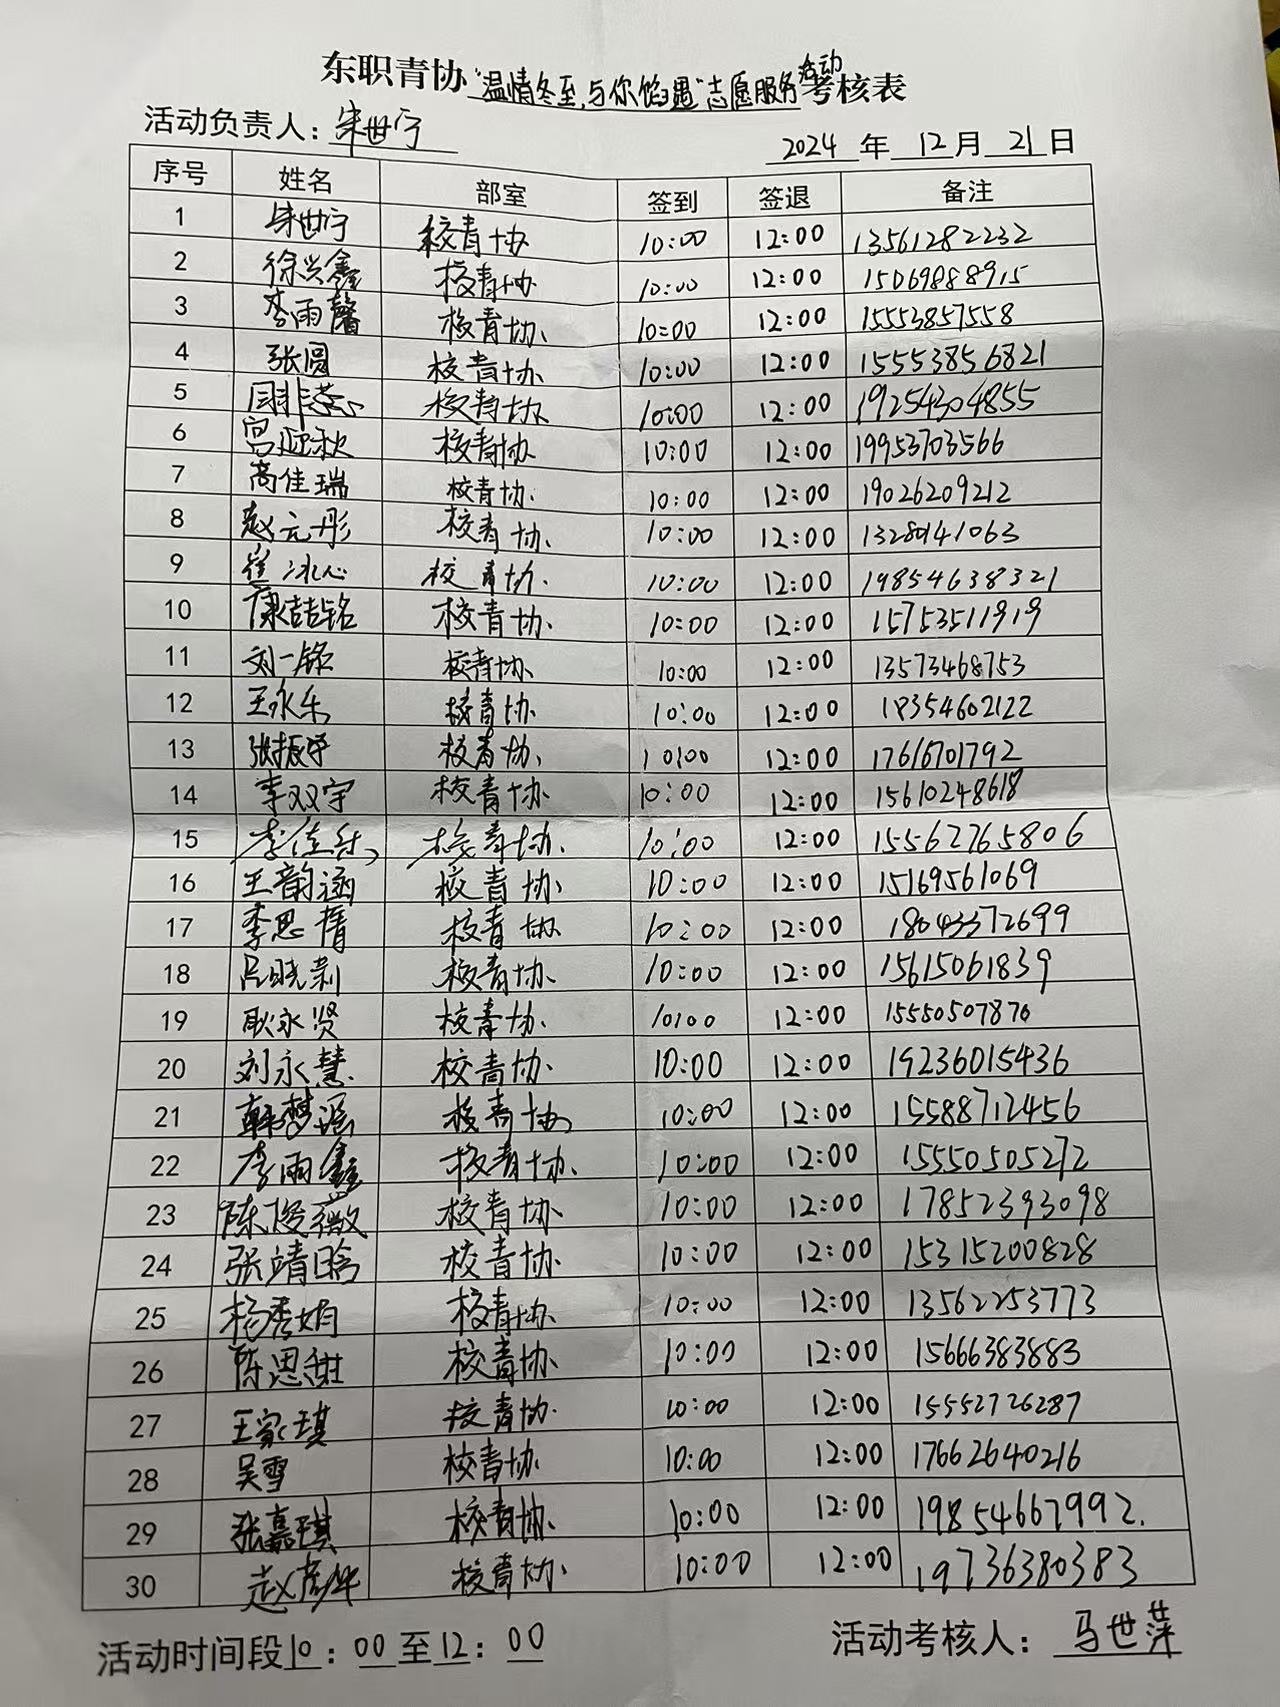 东职青协“温情冬至,与你馅遇”志愿服务活动考核表
活动负责人：朱世宁
2024 年 12 月 21 日
序号 姓名 部室 签到 签退 备注
1 朱世宁 校青协 10:00 12:00 13561282232
2 徐兴鑫 校青协 10:00 12:00 15069888915
3 李雨馨 校青协. 10:00 12:00 15553857558
4 张圆 校青协 10:00 12:00 15553856821
5 校青协 10:00 12:00 19254304855
6 宫迎秋 校青协 10:00 12:00 19953703566
7 高佳瑞 校青协. 10:00 12:00 19026209212
8 赵元彤 校青协. 10:00 12:00
9 崔冰心 校青协. 10:00 12:00 19854638321
10 康喆铭 校青协. 10:00 12:00 15753511919
11 刘一铭 校青协. 10:00 12:00 13573468753
12 王永乐 校青协. 10:00 12:00 18354602122
13 张振宇 校青协. 10:00 12:00 17616701792
14 李双宇 校青协 10:00 12:00 15610248618
15 校青协. 10:00 12:00 15562765806
16 王韵涵 校青协 10:00 12:00 15169561069
17 李思 校青协 10:00 12:00 18043372699
18 吕晓莉 校青协. 10:00 12:00 15615061839
19 耿永贤 校青协. 10:00 12:00 15550507876
20 刘永慧 校青协. 10:00 12:00 19236015436
21 韩梦瑶 校青协 10:00 12:00 15588712456
22 李雨鑫 校青协. 10:00 12:00 15550505272
23 陈俊薇 校青协. 10:00 12:00 17852393098
24 张靖晗 校青协. 10:00 12:00 15315200828
25 杨秀娟 校青协. 10:00 12:00 13562253773
26 陈思甜 校青协. 10:00 12:00 15666383883
27 王家琪 校青协. 10:00 12:00 15552726287
28 吴雪 校青协. 10:00 12:00 17662640216
29 张嘉琪 校青协. 10:00 12:00 19854667992.
30 赵彦华 校青协. 10:00 12:00 19736380383
活动时间段 10：00 至 12：00
活动考核人：马世萍